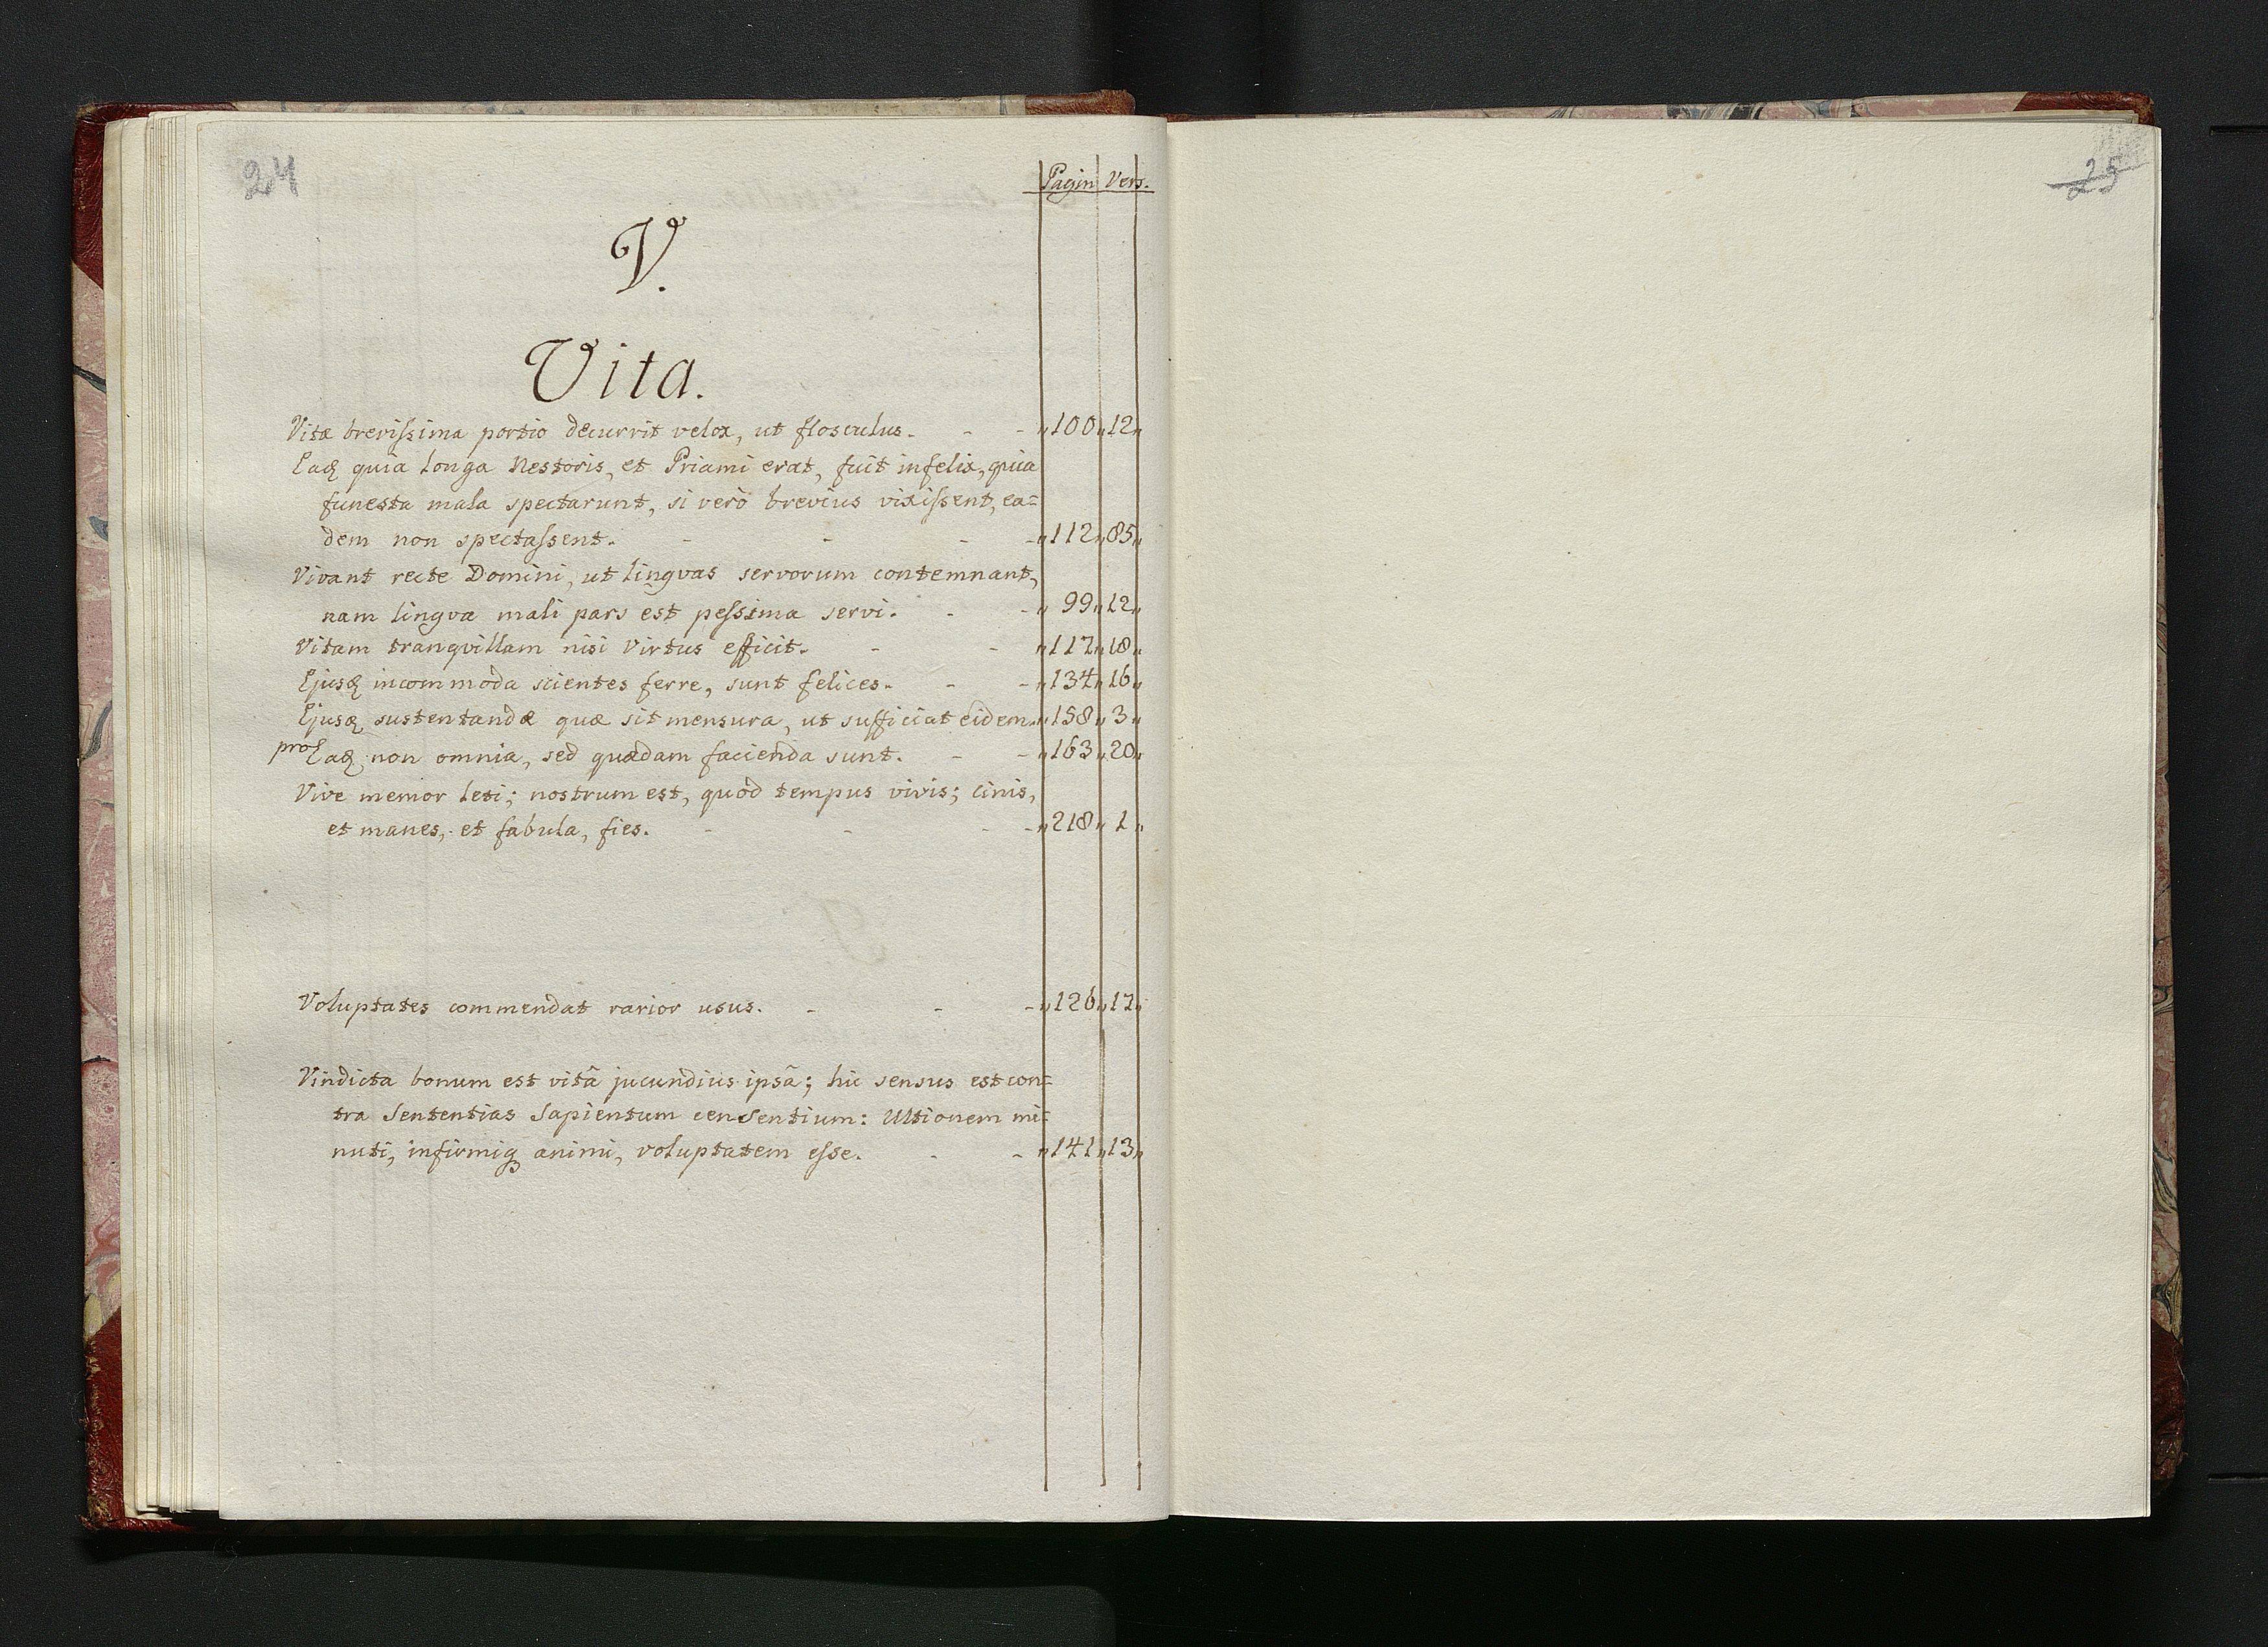 24
Pagin Vers.
V.
Vita.
Vitæ breviſsima portio decurrit velox, ut flosculus. - - „100„12„
Eaq quia longa Nestoris, et Priami erat, fuit infelix, quia
funesta mala spectarunt, si verò brevius vixiſsent, ea=
dem non spectaſsent. - - - - „112„85„
Vivant recte Domini, ut lingvas servorum contemnant,
nam lingva mali pars est peſsima servi. - - „99„12„
Vitam tranqvillam nisi Virtus efficit. - - „117„18„
Ejusq incommoda scientes ferre, sunt felices. - - „134„16„
Ejusq sustentandæ quæ sit mensura, ut sufficiat eidem. „158„3„
pro Eaq non omnia, sed quædam facienda sunt. - - „163„20„
Vive memor leti; nostrum est, quòd tempus vivis; cinis,
et manes, et fabula, fies. - - - - „218„1„
Voluptates commendat rarior usus. - - - „126„17„
Vindicta bonum est vitâ jucundius ipsâ; hic sensus est con=
tra Sententias Sapientum censentium: Ultionem mi=
nuti, infirmiq animi, voluptatem eſse. - - „141„13„
25